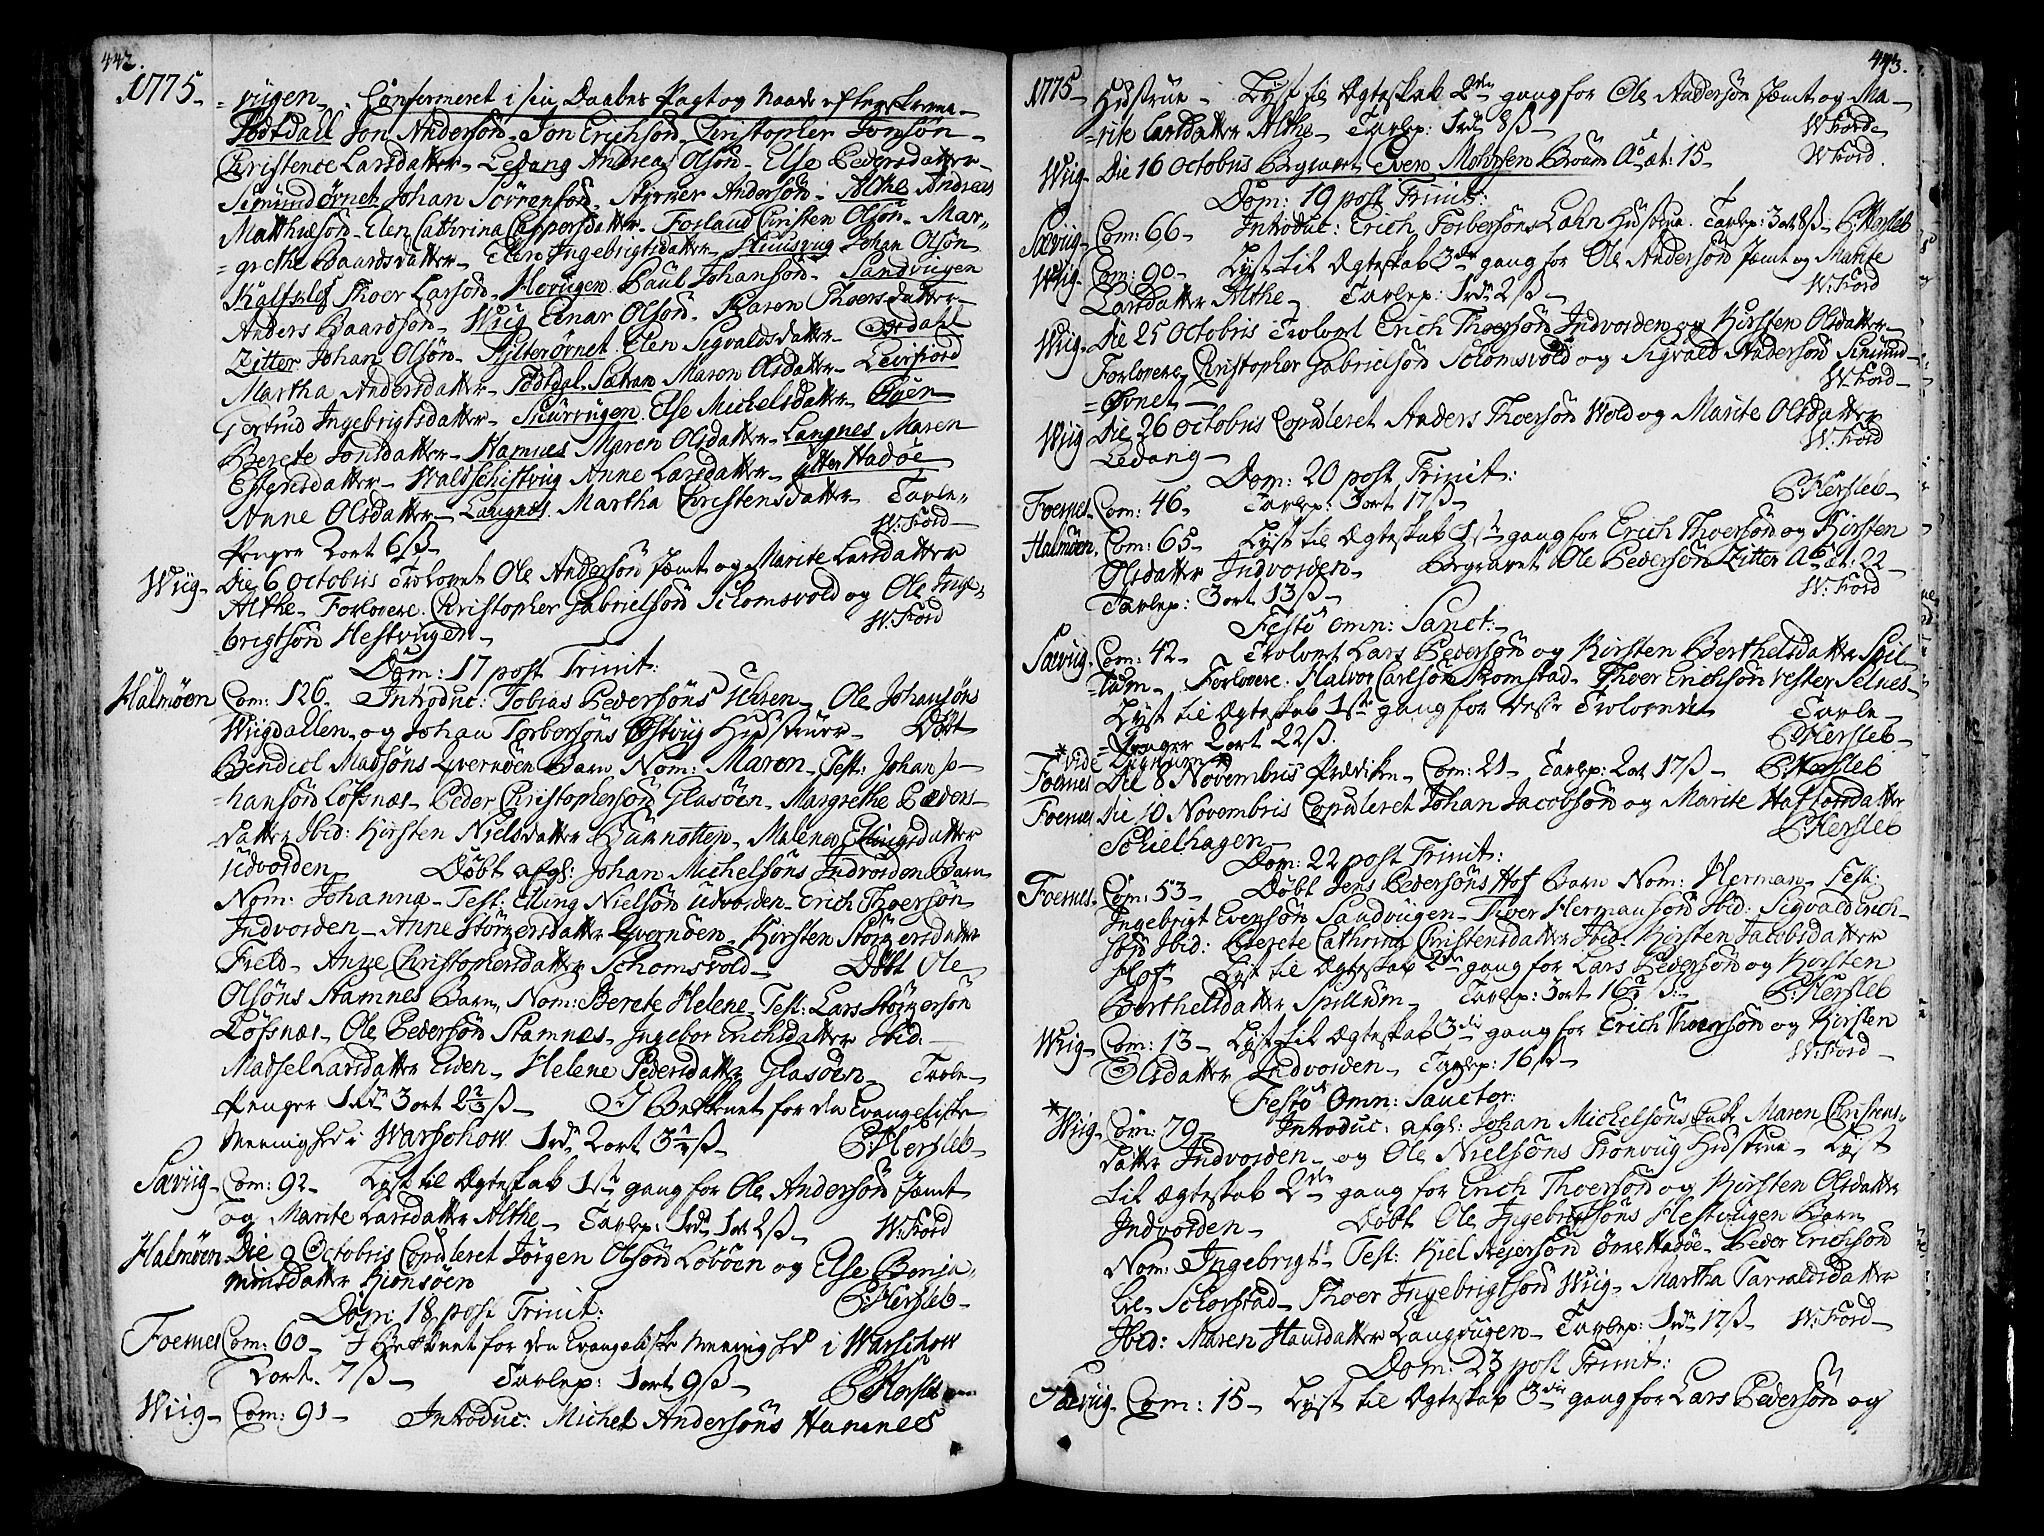 442.
1775-
=viigen- Confermeret i sin Daabes Pagt og Naade efterskrevne-
Fodtdall Jon Anderson- Jon Erichson- Christopher Jonsøn-
Christence Larsdatter- Ledang Andreas Olsøn- Else Pedersdatter-
Simund Ørnet Johan Sørrensøn- Andersøn- Althe Andreas
Matthiesøn- Elen Cathrina Caspersdatter- Forland Christen Olsøn- Mar-
=grethe Baardsdatter- Elen Ingebrigtsdatter- Johan Olsøn-
Thoer Larsøn- Horvigen Paul Johansøn- Sandviigen
Anders Baardsøn- Wiig Einar Olsøn- Karen Thoersdatter-
Zitter Johan Olsøn- Elen Sigvaldsdatter-
Martha Andersdatter- Fodtdal Sætran Maren Olsdatter- Leirfiord
Gertrud Ingebrigtsdatter- Else Michelsdatter- Øyen
Berete Jonsdatter- Hamnes Maren Olsdatter- Langnes Maren
Estensdatter- Waldschiftviig Anne Larsdatter- Ytter Hadøe
Anne Olsdatter- Langnes Martha Christensdatter- Tavle-
Penger 2 ort 6 ß- W: Ford-
Wiig- Die 6 Octobris Trolovet Ole Andersøn Jæmt og Marite Larsdatter
Althe- Forlovere Christopher Gabrielsøn Solomsvold og Ole Inge-
brigtsøn Hestviigen- W: Ford
Dom: 17 post Trinit:
Halmøen Com: 126- Introduc: Tobias Pedersøns Uhren- Ole Johansøns
Wiigdallen- og Johan Torborsøns Østviig Hustruer- Døbt
Bendict Madsøns Qvernøen Barn Nom: Maren- Test: Johan Jo-
hansøn Løfsnæs- Peder Christophersøn Glasøen- Margrethe Peders-
datter Ibid: Kirsten Nielsdatter Malena Ellingsdatter
Udvorden Døbt afgl: Johan Michelsøns Indvorden Barn
Nom: Johanna- Test: Elling Nielsøn Udvorden- Erich Thoersøn
Indvorden- Anne Størgersdatter Qvernøen- Kirsten Størgersdatter
Field- Anne Christophersdatter Schomsvold- Døbt Ole
Olsøns Stamnes Barn, Nom: Berete Helene- Test: Lars Størgersøn
Løfsnæs- Ole Pedersøn Stamnæs- Ingebor Erichsdatter Ibid:-
Madsel Larsdatter Eiden- Helene Pedersdatter Glasøen- Tavle-
Penger 1 rdr 3 ort 2 2/3 ß- I Bekkenet for den Evangeliske
Meenighed i Warschow 1 rdr 2 ort 3 1/2 ß- C: Hersleb-
Sæviig- Com: 92- Lyst til Ægteskab 1ste gang for Ole Andersøn Jæmt
og Marite Larsdatter Althe- Tavlep: 1 rdr 1 ort 2 ß- W: Ford
Halmøen Die 9 Octobris Copuleret Jørgen Olsøn Lovøen og Else Benja-
minsdatter Kiønsøen C: Hersleb-
Dom: 18 post Trinit:
Foernes Com: 60- I Bekkenet for den Evangeliske Meenighed i Warschow
2 ort. 7 ß- Tavlep: 1 ort 9 ß- C: Hersleb
Wiig- Com: 91- Introduc: Michel Andersøns Hamnes
443.
1775- Hustrue- Lyst til Ægteskab 2den gang for Ole Andersøn Jæmt og Ma-
=rite Larsdatter Althe- Tavlep: 1 rdr 8 ß- W: Ford-
Wiig- Die 16 Octobris Begravet Even Mortensen Aº æt: 15- W: Ford.
Dom: 19 post Trinit:
Sæviig- Com: 66- Introduc: Erich Torbersøns Hustrue. Tavlep: 3 ort 8 ß- C: Hersleb
Wiig- Com: 90- Lyst til Ægteskab 3die gang for Ole Andersøn Jæmt og Marite
Larsdatter Althe- Tavlep: 1 rdr 2 ß- W: Ford
Wiig- Die 25 Octobris Trolovet Erich Thoersøn Indvorden og Kirsten Olsdatter-
Forlovere Christopher Gabrielsøn Solomsvold og Sigvald Andersøn Simund-
=Ørnet- W: Ford-
Wiig Die 26 Octobris Copuleret Anders Thoersøn Wold og Marite Olsdatter
Ledang- W: Ford
Dom: 20 post Trinit:
Foernes- Com: 46- Tavlep: 3 ort 17 ß- C: Hersleb-
Halmøen. Com: 65- Lyst til Ægteskab 1ste gang for Erich Thoersøn og Kirsten
Olsdatter Indvorden- Begravet Ole Pedersøn Zitter Aº æt: 22-
Tavlep: 3 ort 13 ß- W: Ford
Festo omn: Sanct:-
Sæviig- Com: 42- Trolovet Lars Pedersøn og Kirsten Berthelsdatter Spil-
=lum- Forlovere Halvor Carlsøn Romstad- Thoer Erichsøn Vester Selnes-
Lyst til Ægteskab 1ste gang for disse Trolovede Tavle-
=Penger 2 ort 22 ß. C: Hersleb-
*vide
Foernes Die 8 Novembris Prædiken- Com: 21- Tavlep: 2 ort 17 ß- C: Hersleb
Foernes Die 10 Novembris Copuleret Johan Jacobsøn og Marite Haftorsdatter
Schielhagen C: Hersleb
Dom: 22 post Trinit:
Foernes- Com: 53- Døbt Jens Pedersøns Hof Barn Nom: Herman- Test:
Ingebrigt Evensøn Sandviigen- Thoer Hermansøn Ibid: Sigvald Erich-
søn Ibid: Berete Cathrina Christensdatter Ibid: Kirsten Jacobsdatter
Hof- Lyst til Ægteskab 2den gang for Lars Pedersøn og Kirsten
Berthelsdatter Spillum- Tavlep: 3 ort 16 2/3 ß:- C: Hersleb
Wiig- Com: 13- Lyst til Ægteskab 3die gang for Erich Thoersøn og Kirsten
Olsdatter Indvorden- Tavlep: 16 ß- W: Ford-
Festo Omn: Sanctor:
* Wiig- Com: 79- Introduc: afgl: Johan Michelsøns Enke Maren Christens-
datter Indvorden- og Ole Nielsøns Tronviig Hustrue- Lyst
til Ægteskab 2den gang for Erich Thoersøn og Kirsten Olsdatter
Indvorden- Døbt Ole Ingebrigtsøns Hestviigen Barn
Nom: Ingebrigt- Test: Kiel Reiersøn Øvre Hadøe- Peder Erichsøn
Schorstad- Thoer Ingebrigtsøn Wiig- Martha Tarvaldsdatter
Ibid: Maren Hansdatter Langviigen- Tavlep: 1 rdr 17 ß- W: Ford-
Dom: 23 post Trinit:
Sæviig- Com: 15- Lyst til Ægteskab 3die gang for Lars Pedersøn og